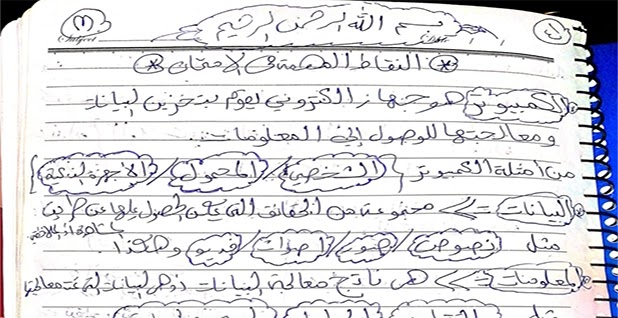 بسم الله الرحمن الرحيم
* النقاط المهمة في الامتحان *
الكمبيوتر هو جهاز الكتروني يقوم بتخزين البيانات
ومعالجتها للوصول إلى المعلومات
من امثلة الكمبيوتر { الشخصي / المحمول / الأجهزة الذكية }
البيانات <= مجموعة من الحقائق التي يمكن الحصول عليها عن طريق
مثل نصوص / صور / اصوات / فيديو وهكذا .
المعلومات <= هي ناتج معالجة البيانات البيانات التي تمت معالجتها